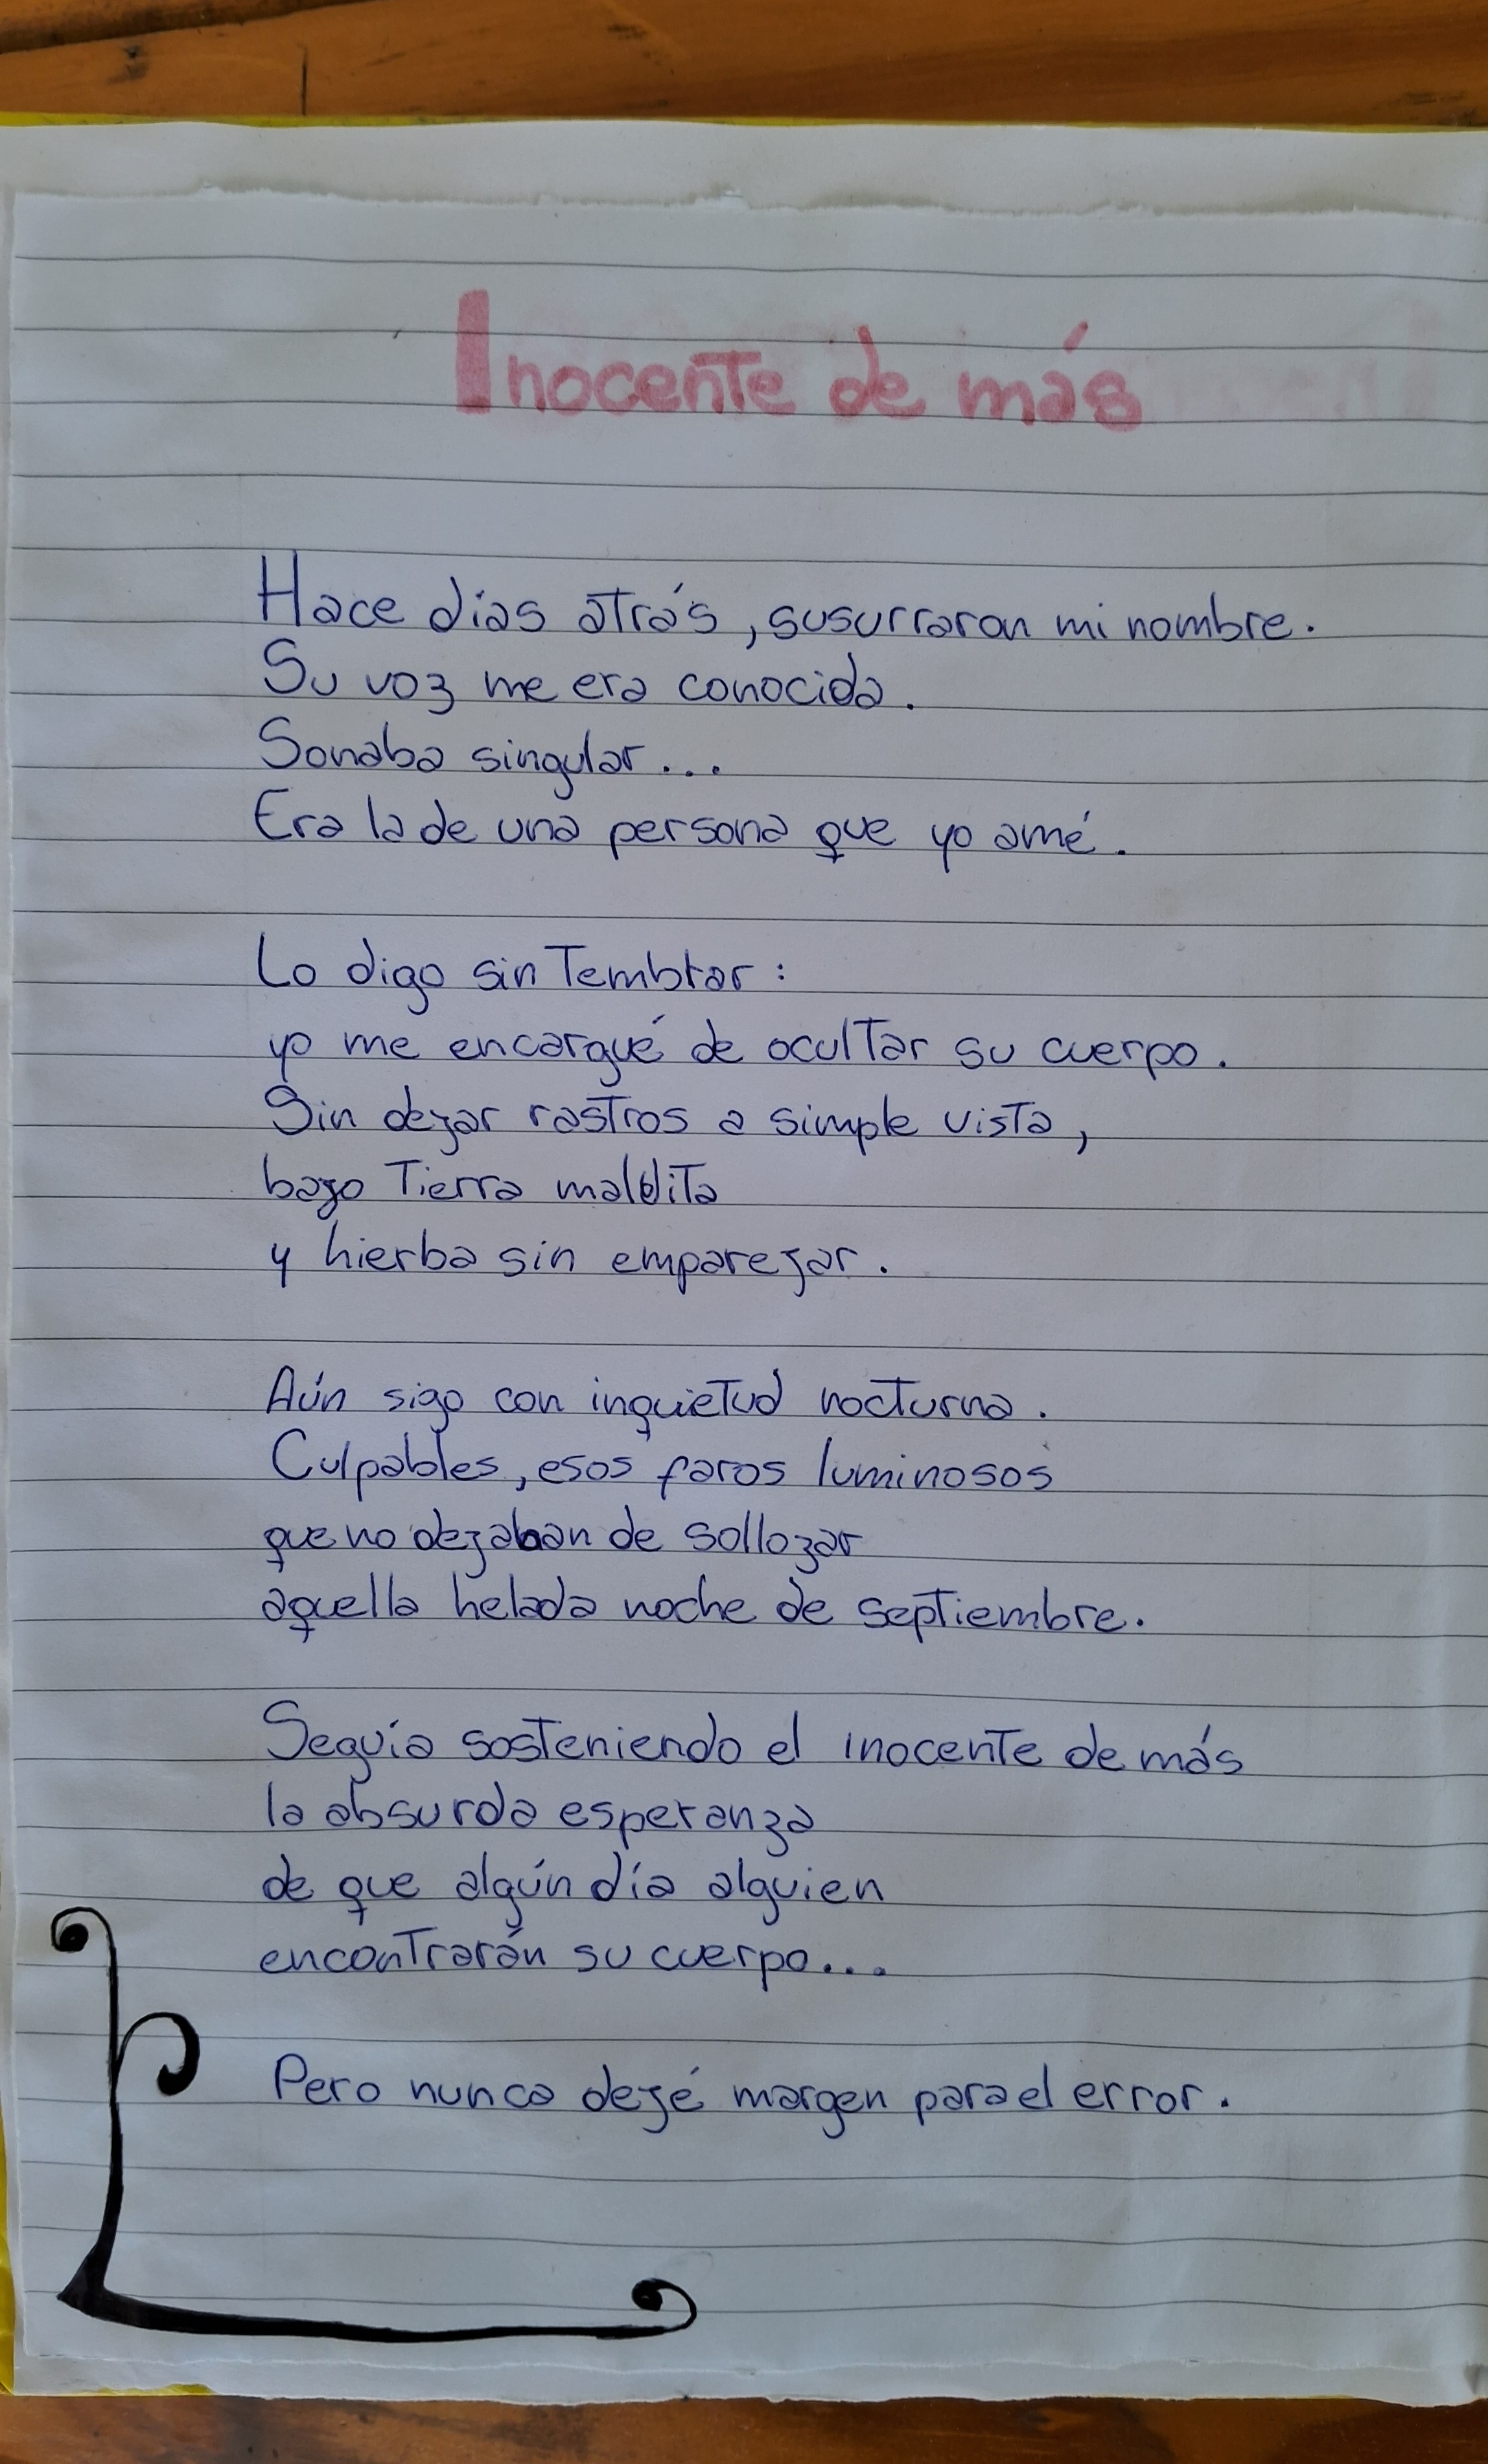 Inocente de más
Hace días atrás, susurraron mi nombre.
Su voz me era conocida.
Sonaba singular...
Era la de una persona que yo amé.
Lo digo sin temblar:
yo me encargué de ocultar su cuerpo.
Sin dejar rastros a simple vista,
bajo tierra maldita
y hierba sin emparejar.
Aún sigo con inquietud nocturna.
Culpables, esos faros luminosos
que no dejaban de sollozar
aquella helada noche de septiembre.
Seguía sosteniendo el inocente de más
la absurda esperanza
de que algún día alguien
encontrarán su cuerpo...
Pero nunca dejé margen para el error.